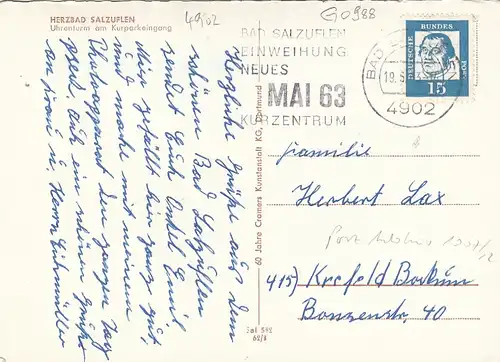 HERZBAD SALZUFLEN
Uhrenturm am Kurparkeingang
49/02
G0988
BAD SALZUFLEN
EINWEIHUNG
NEUES
MAI 63
KURZENTRUM
BAD
19.5.
4902
DEUTSCHE BUNDES POST
15
Herzliche Grüße aus dem
schönen Bad Salzuflen
sendet Euch Onkel Emil
mir gefällt hier ganz gut,
und mache mit meinem
Photoapparat den ganzen Tag
auch ein schönen Gruß
an Frau u. Herrn
60 Jahre Cramers Kunstanstalt KG, Dortmund
Saf 592
62/8
Familie
Herbert Lax
415) Krefeld Bockum
Bonzenstr. 40